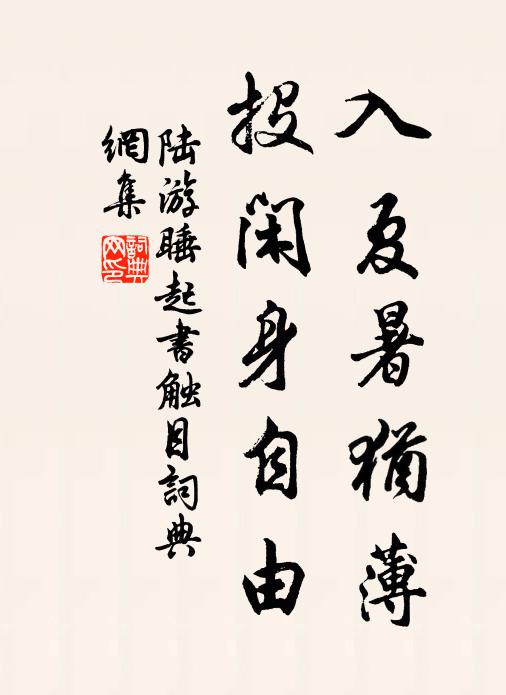 入夏暑猶薄
投閑身自由
陆游睡起書触目詞典
網集
詞典
网印